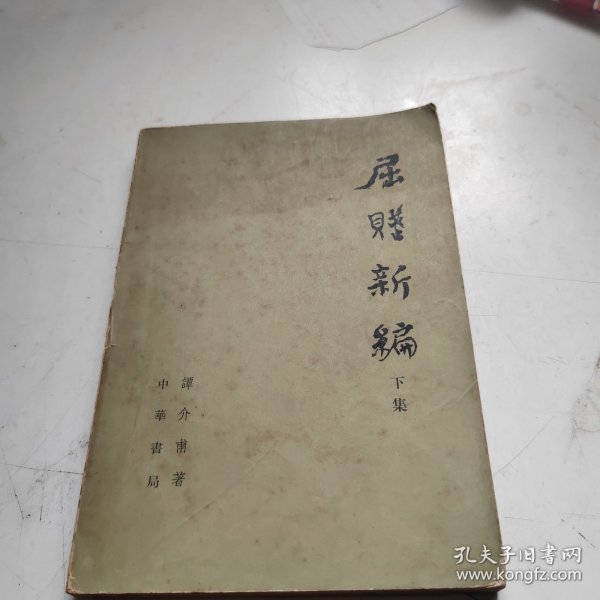 屈賦新編
下集
譚介甫著
中華書局
孔夫子旧书网
www.kongfz.com